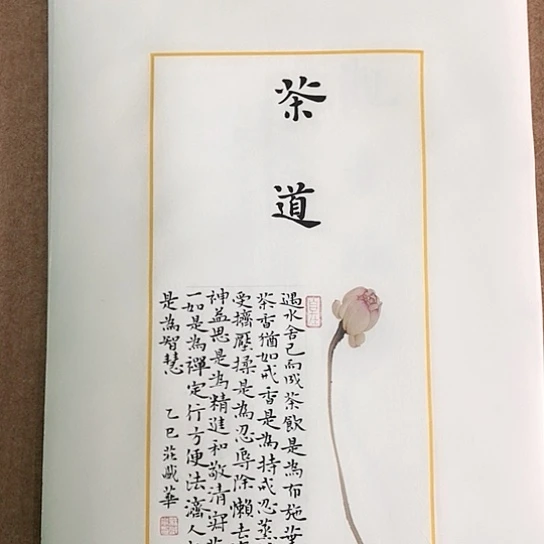 茶道
遇水舍己而成茶飲是為布施葉
茶香猶如戒香是為持戒忍蒸
受擠壓揉是為忍辱除懶去
神益思是為精進和敬清寂茶
一如是為禪定行方便法濟人
是為智慧 乙巳